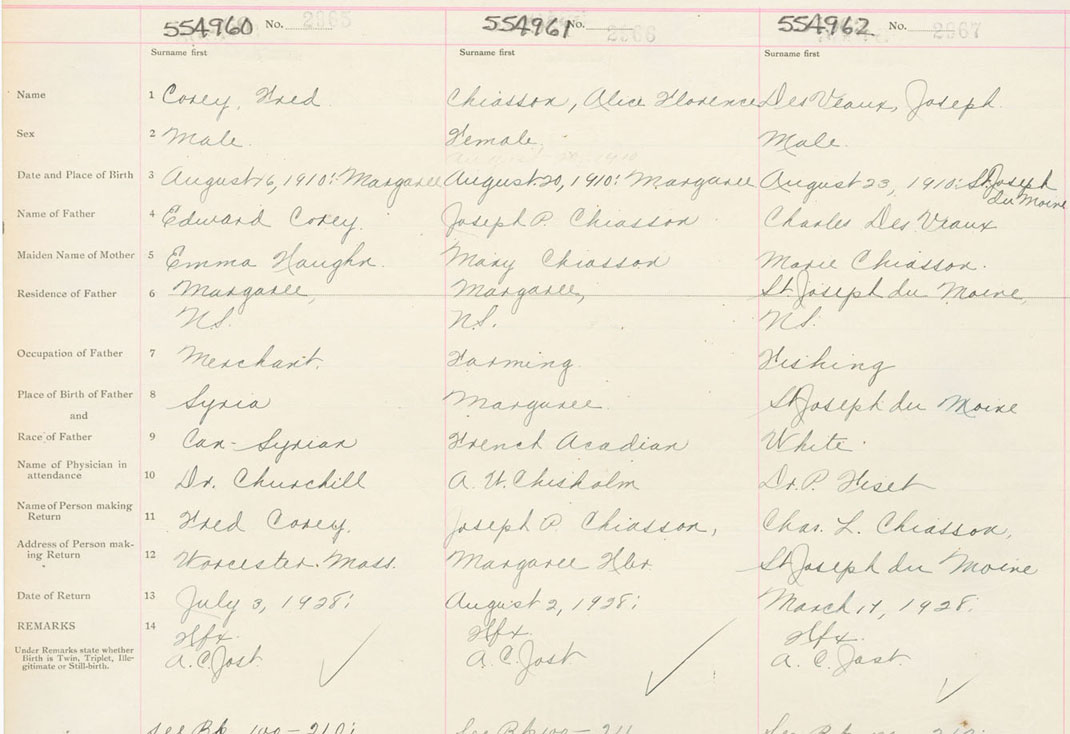 554960 No. 2965 554961 No. 2966 554962 No. 2967
Surname first Surname first Surname first
Name 1 Corey, Fred Chiasson, Alice Florence Des Veaux, Joseph.
Sex 2 Male. Female. Male.
Date and Place of Birth 3 August 16, 1910: Margaree August 20, 1910: Margaree August 23, 1910: St. Joseph
du Moine
Name of Father 4 Edward Corey. Joseph P. Chiasson Charles Des Veaux
Maiden Name of Mother 5 Emma Haughn. Mary Chiasson Marie Chiasson.
Residence of Father 6 Margaree, Margaree, St. Joseph du Moine,
N.S. N.S. N.S.
Occupation of Father 7 Merchant. Farming. Fishing
Place of Birth of Father 8 Syria Margaree. St. Joseph du Moine
and
Race of Father 9 Can-Syrian French Acadian White.
Name of Physician in
attendance 10 Dr. Churchill A. W. Chisholm Dr. P. Fiset
Name of Person making
Return 11 Fred Corey. Joseph P. Chiasson, Chas. L. Chiasson,
Address of Person mak-
ing Return 12 Worcester. Mass. Margaree Hbr St. Joseph du Moine
Date of Return 13 July 3, 1928: August 2, 1928: March 17, 1928:
REMARKS 14 Hfx. Hfx. Hfx.
Under Remarks state whether
Birth is Twin, Triplet, Ille-
gitimate or Still-birth.
A. C. Jost A. C. Jost A. C. Jost.
See Bk. 100-210: See Bk 100-211